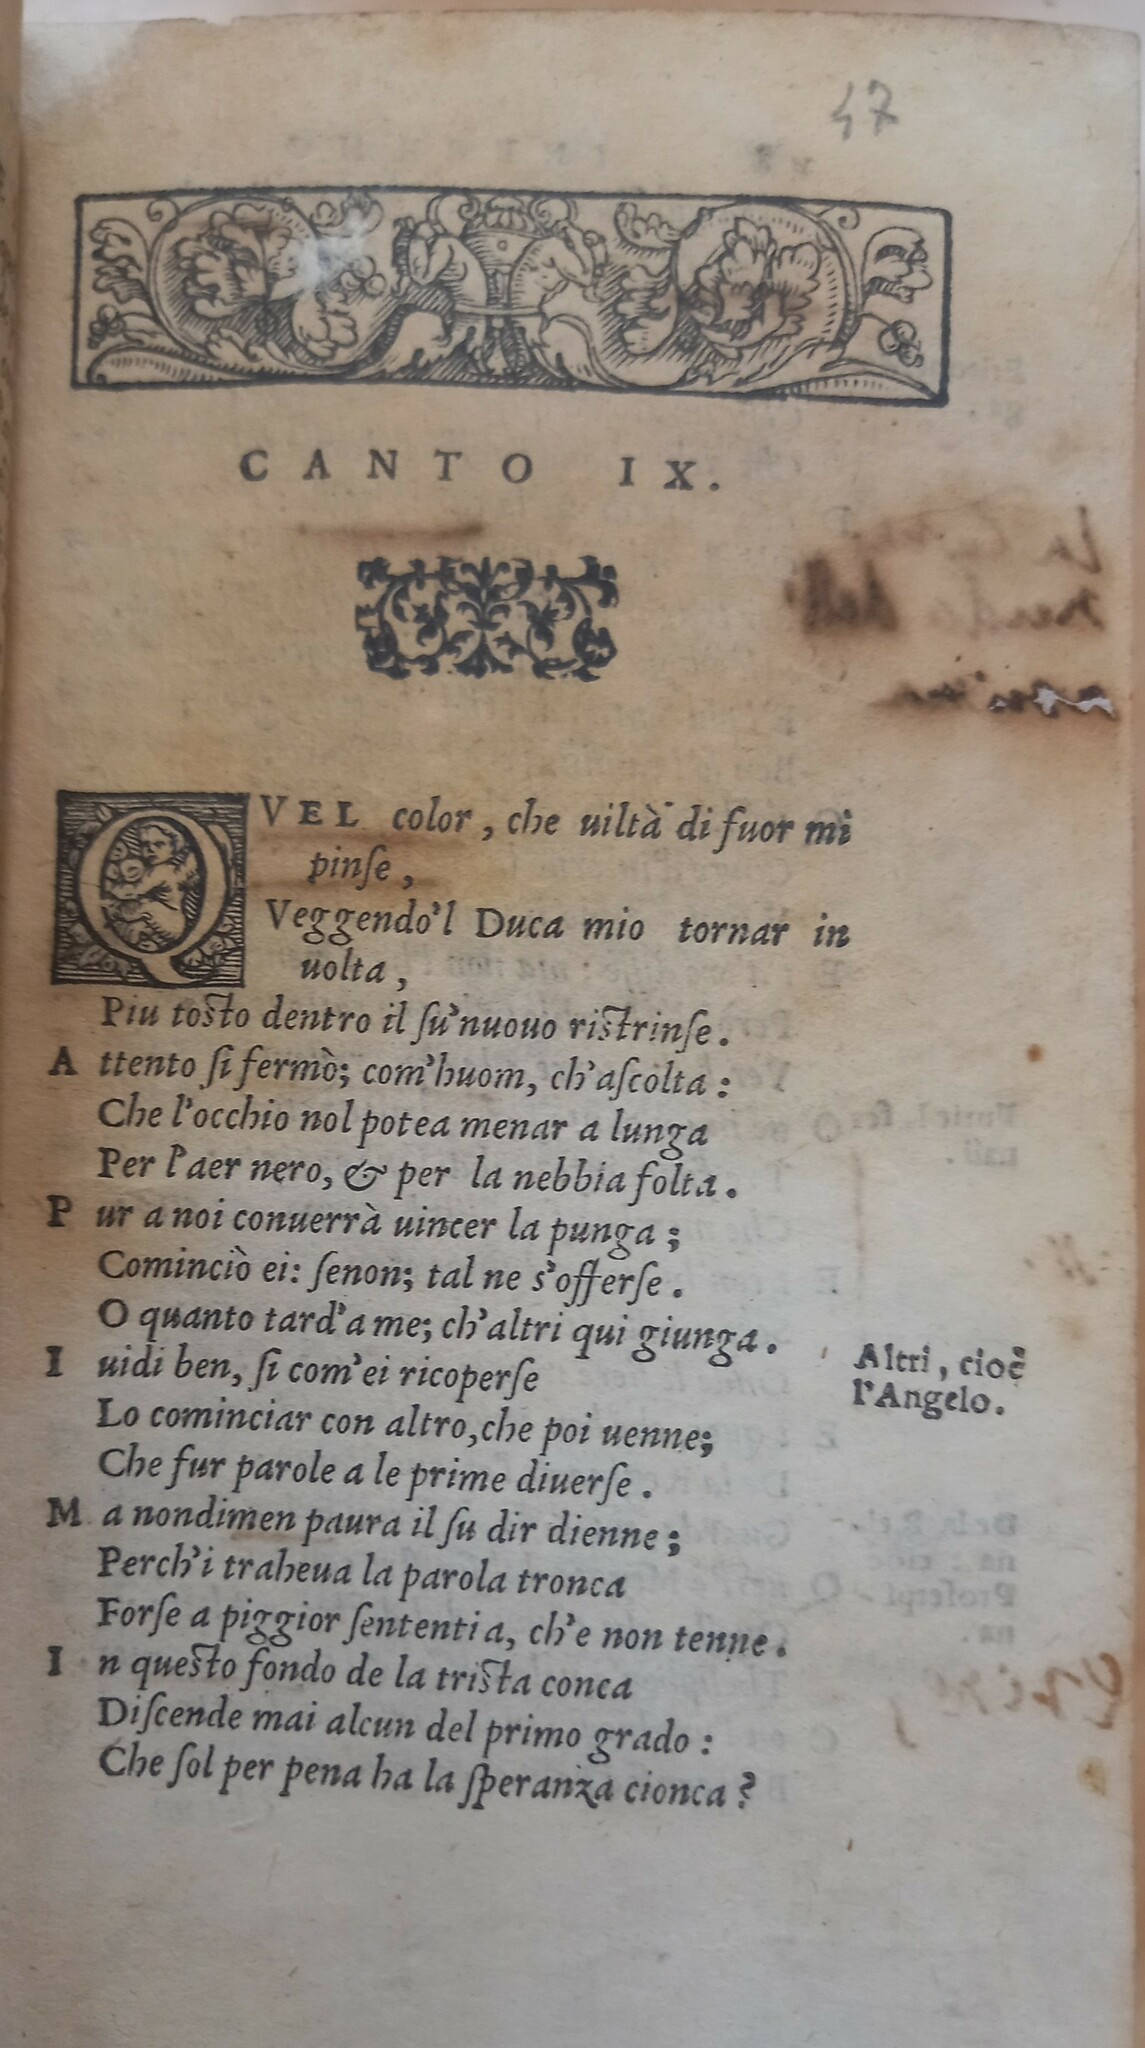 47
CANTO IX.
QVEL color, che uiltà di fuor mi
pinſe,
Veggendo'l Duca mio tornar in
uolta,
Piu toſto dentro il ſu'nuouo riſtrinſe.
Attento ſi fermò; com'huom, ch'aſcolta:
Che l'occhio nol potea menar a lunga
Per l'aer nero, & per la nebbia folta.
Pur a noi conuerrà uincer la punga;
Cominciò ei: ſenon; tal ne s'offerſe.
O quanto tard'a me; ch'altri qui giunga.
Altri, cioè
l'Angelo.
I uidi ben, ſi com'ei ricoperſe
Lo cominciar con altro, che poi uenne;
Che fur parole a le prime diuerſe.
Ma nondimen paura il ſu dir dienne;
Perch'i traheua la parola tronca
Forſe a piggior ſententia, ch'e non tenne.
In queſto fondo de la triſta conca
Diſcende mai alcun del primo grado:
Che ſol per pena ha la ſperanza cionca?